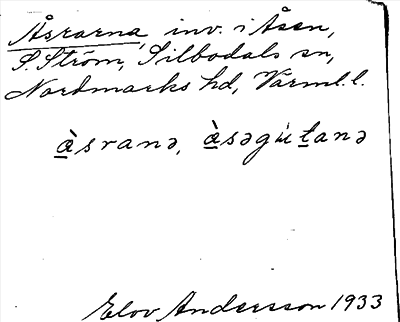 Åsrarna, inv. i Åsen,
S. Ström, Silbodals sn,
Nordmarks hd, Värml. l.
àsranə, àsəgu̇tanə
Elov Andersson 1933